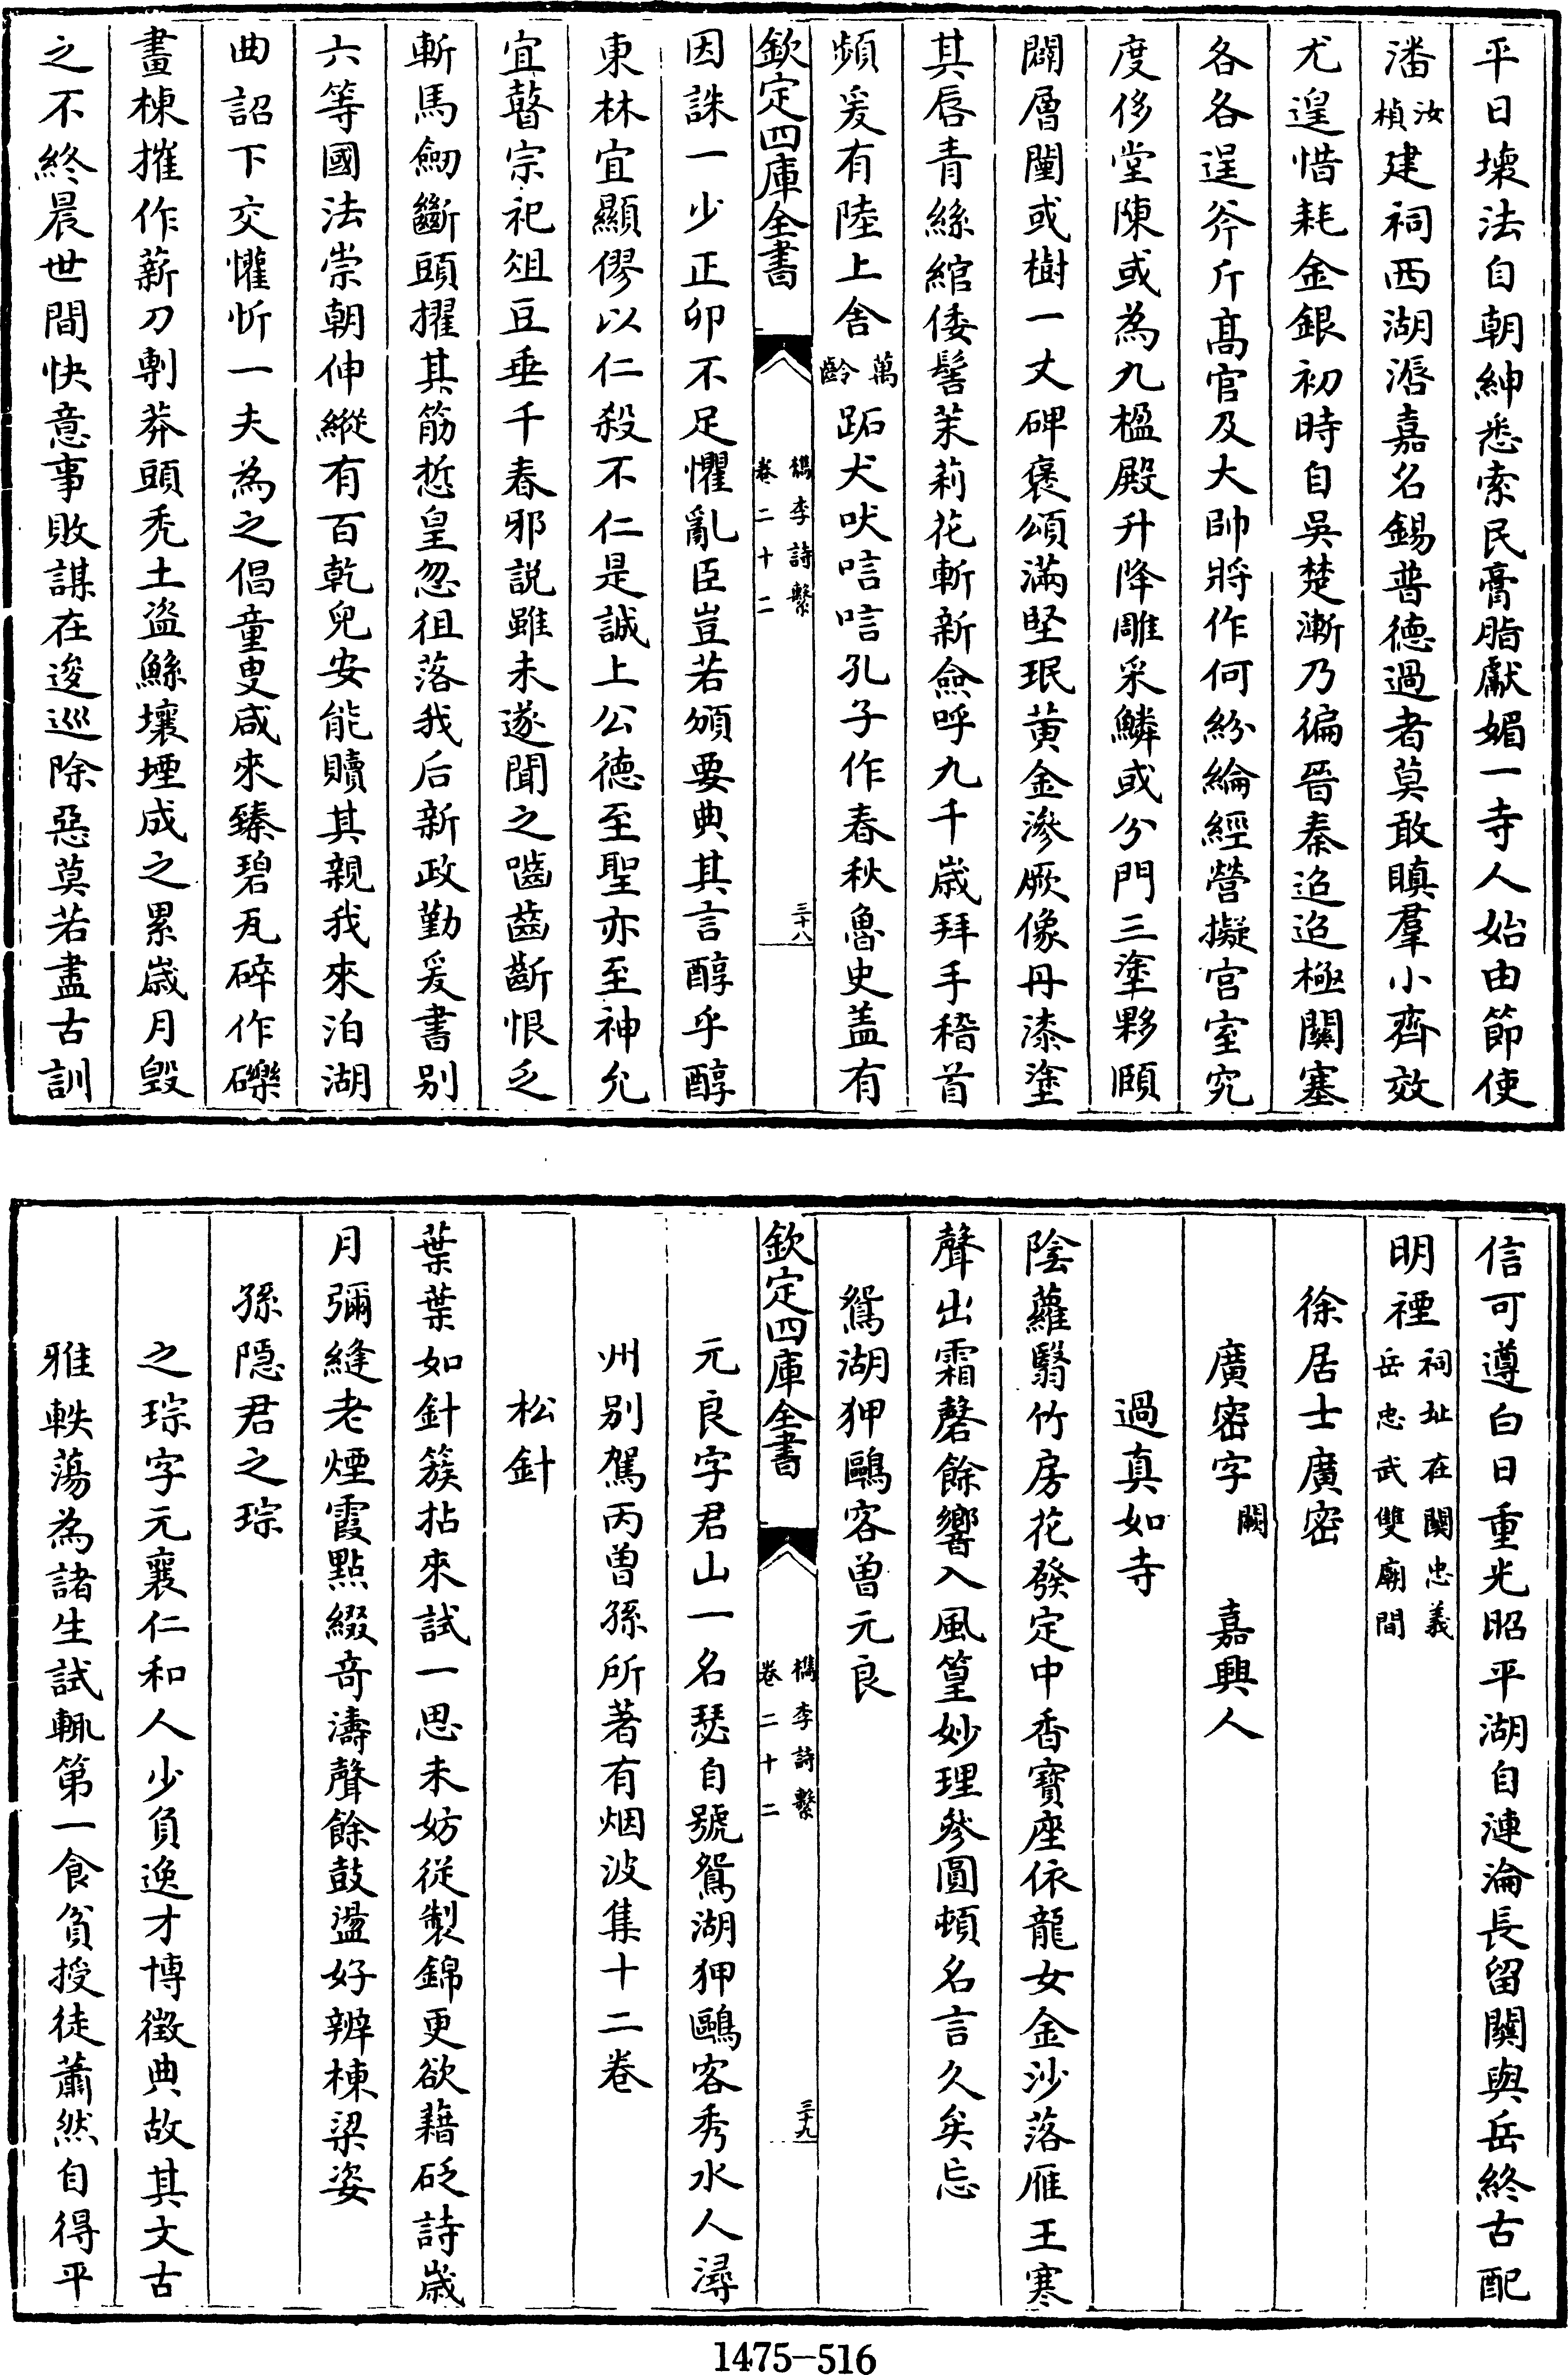 平日壊法自朝紳悉索民膏脂獻媚一寺人始由節使
潘汝楨建祠西湖漘嘉名錫普德過者莫敢瞋羣小齊效
尤遑惜耗金銀初時自吳楚漸乃徧晉秦迨迨極關塞
各各逞斧斤髙官及大帥將作何紛綸經營擬宫室究
度侈堂陳或為九楹殿升降雕采鱗或分門三塗夥頤
闢層闉或樹一丈碑褒頌滿堅珉黄金滲厥像丹漆塗
其唇青絲綰倭髻茉莉花斬新僉呼九千嵗拜手稽首
頻爰有陸上舍萬齡跖犬吠唁唁孔子作春秋魯史盖有
欽定四庫全書
檇李詩繫
卷二十二
三十八
因誅一少正卯不足懼亂臣豈若頒要典其言醇乎醇
東林宜顯僇以仁殺不仁是誠上公德至聖亦至神允
宜瞽宗祀俎豆垂千春邪説雖未遂聞之嚙齒齗恨乏
斬馬劒斷頭擢其筋悊皇忽徂落我后新政勤爰書别
六等國法崇朝伸縱有百乾兒安能贖其親我來泊湖
曲詔下交懽忻一夫為之倡童叟咸來臻碧瓦碎作礫
畫棟摧作薪刀剸莽頭秃土盗鯀壤堙成之累嵗月毁
之不終晨世間快意事敗謀在逡巡除惡莫若盡古訓
信可遵白日重光昭平湖自漣淪長留關與岳終古配
明禋祠址在關忠義岳忠武雙廟間
徐居士廣密
廣密字闕 嘉興人
過真如寺
陰蘿翳竹房花發定中香寳座依龍女金沙落雁王寒
聲出霜磬餘響入風篁妙理參圓頓名言久矣忘
鴛湖狎鷗客曽元良
欽定四庫全書
檇李詩繫
卷二十二
三十九
元良字君山一名瑟自號鴛湖狎鷗客秀水人潯
州别駕丙曽孫所著有烟波集十二卷
松針
葉葉如針簇拈來試一思未妨從製錦更欲藉砭詩嵗
月彌縫老煙霞點綴竒濤聲餘鼓盪好辨棟梁姿
孫隠君之琮
之琮字元襄仁和人少負逸才博徴典故其文古
雅軼蕩為諸生試輒第一食貧授徒蕭然自得平
1475—516